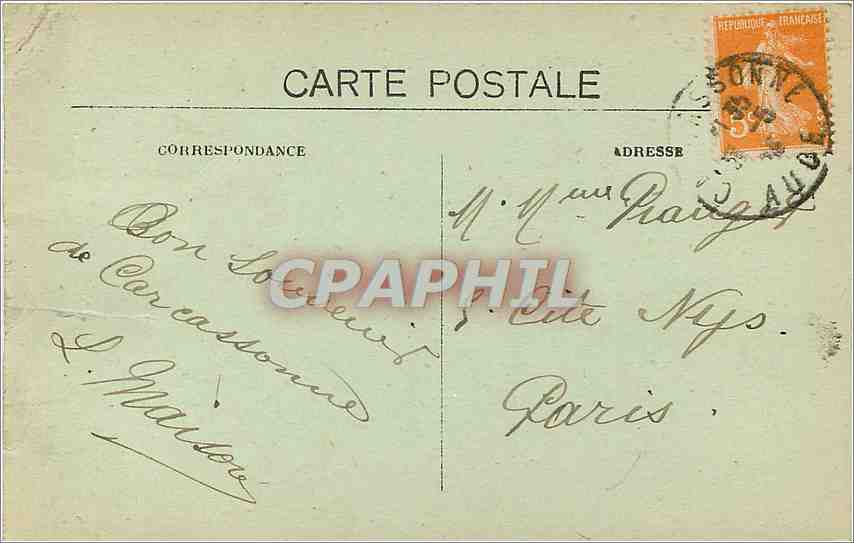 RÉPUBLIQUE FRANÇAISE
5c
CARTE POSTALE
CORRESPONDANCE
ADRESSE
AUDE
Bon Souvenir
de Carcassonne
L. Maison
M. Mme
5. Cité Nys.
Paris.
CPAPHIL